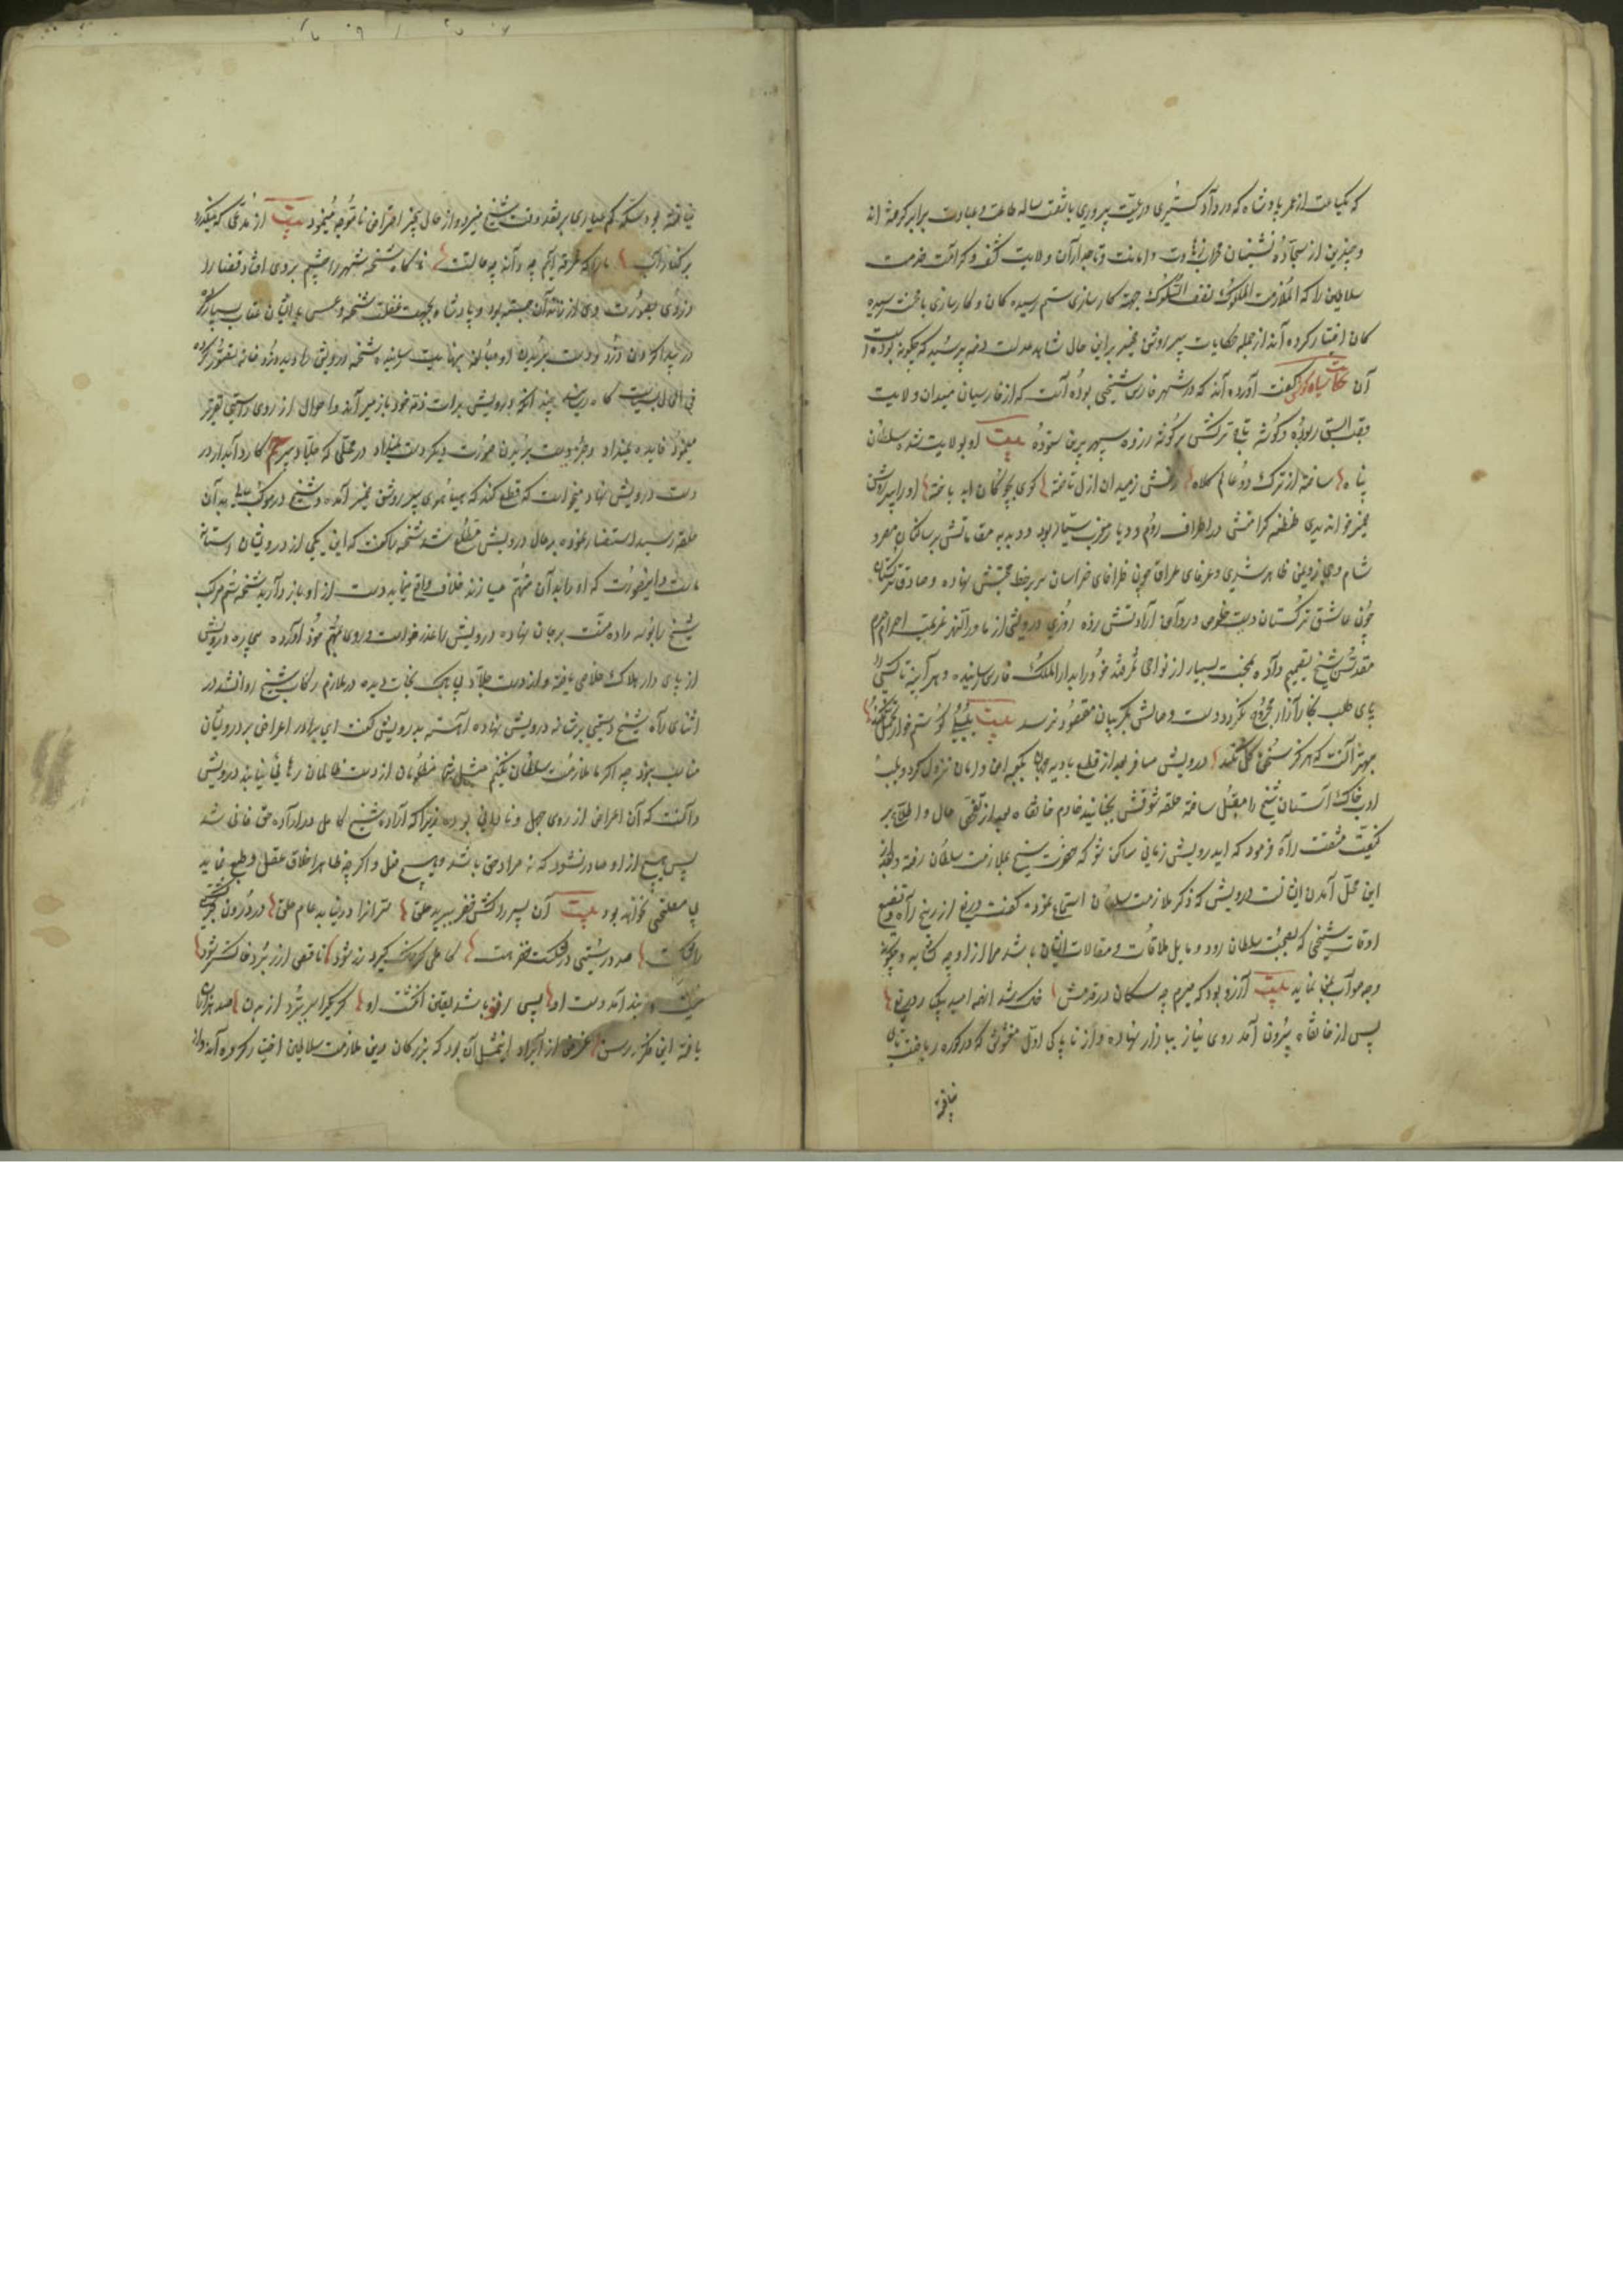 که یکساعت از عمر پادشاه که در دادگستری و رعیت پروری باشصت ساله طاعت و عبادت برابر کرده اند
و چندین از سجاده نشینان محراب زهادت و امانت و تاجداران ولایت کشف و کرامت خدمت
سلاطین را که الملازمت الملوک نصف السلوک جهة کارسازی ستم رسیده کان و کارسازی بامحنت رسیده
کان اختیار کرده اند از جمله حکایات پیر روشن ضمیر براین حال شاهد عدلست دمنه پرسید که چگونه بوده است
آن حکایت سیاه گوش گفت آورده اند که در شهر فارس شیخی بوده است که از فارسیان میدان ولایت
قصب السبق ربوده و گوشه تاج ترکش بر گوشه سپهر برین سوده بیت او بولایت شده سلطان
پناه ساخته از ترک دو عالم کلاه رخش ز میدان ازل تاخته گوی بچوگان ابد باخته او را پیر روشن
ضمیر خواندندی طنطنه کرامتش در اطراف روم و دیار مغرب بسیار بود و دبدبه مقاماتش بر ساکنان مصر و
شام و عرفای عراق چون ظرفای خراسان سر بر خط محبتش نهاده و صادقان ترکستان
چون عاشق ترکستان دست خلوص در دامن ارادتش زده روزی درویشی از ماوراءالنهر عزیمت احرام حرم
مقدس شیخ تصمیم داده بمحنت بسیار از نواحی سمرقند خود را بدار الملک فارس رسانیده و هر آینه تا کسی را
پای طلب بخار آزار مجروح نگردد دست وصالش بگریبان مقصود نرسد بیت بلبلی کو ستم خار تحمل نکند
بهتر آنست که هرگز سخن گل نکند درویش مسافر بعد از قطع بادیه هجران بکعبه امن و امان نزول کرد و بلب
ادب خاک آستان شیخ را مقبل ساخته حلقه شوقش بجنبانید خادم خانقاه بعد از تفحص حال و اطلاع بر
کیفیت مشقت راه فرمود که ایدرویش زمانی ساکن شو که حضرت شیخ بملازمت سلطان رفته و
این محل آمدن ایشانست درویش که ذکر ملازمت سلطان استماع نمود گفت دریغ از رنج راه و تضییع
اوقات شیخی که بصحبت سلطان رود و مایل ملاقات و مقالات ایشان باشد مرا از او چه گشاید و
وجه صواب بمن نماید بیت آرزو بود که میرم چه سکان در قدمش خاک شد انهمه امید دریغ
پس از خانقاه بیرون آمد روی نیاز ببازار نهاده و از ناپاکی
نیافته
نیافته بود سکه کم عیاری بر نقد وقت شیخ میزد و از حال بیخبر اعتراض ناموجه مینمود بیت از مدعی که میگذرد
بر کنار آب ما را که غرقه ایم چه داند چه حالتست ناگاه شحنه شهر را چشم بروی افتاد قضا را
دزدی بصورت وی از زندان جسته بود و پادشاه بجهت غفلت شحنه و عسس بایشان عتاب بسیار کرده
در پیدا کردن دزد و دست بریدن او مبالغه بنهایت رسانیده شحنه درویش را دیده دزد تصور کرده
فی الحال بسیاستگاه رساند چند انکه درویش براءت ذمه خود باز میراند و احوال از روی راستی تقریر
مینمود فایده نمیداد و جز دست بریدن صورت دیگر دست نمیداد در محلی که جلاد بیرحم کارد آبدار در
دست درویش نهاد میخواست که قطع کند که پیر روشن ضمیر آمد و شیخ در موکب بدان
حلقه رسید استفسار نموده بر حال درویش مطلع شد شحنه را گفت که این یکی از درویشان آستانه
ماست و اینصورت که او را بدان متهم میسازند خلاف واقع مینماید دست از او باز دارید شحنه سم مرکب
شیخ را بوسه داده منت بر جان نهاده درویش را عذر خواست و روی بمهم خود آورده بیچاره درویش
از پای دار هلاک خلاصی یافته و از دست جلاد بی باک نجات دیده در ملازم رکاب شیخ روانشد در
اثنای راه شیخ دستی بر شانه درویش نهاده آهسته بدرویش گفت ای برادر اعتراض بر درویشان
مناسب نبود چه اگر ما ملازمت سلطان نکنیم مثل شما مظلومان از دست ظالمان رهائی نیابند درویش
دانست که آن اعتراض از روی جهل و نادانی بوده زیرا که اراده شیخ کامل در اراده حق فانی شد
پس هیچ از او صادر نشود که نه مراد حق باشد و هیچ فعل و اگر چه ظاهرا خلاف عقل و طبع نماید
بی مصلحتی نخواهد بود بیت آن پسر را کش خضر ببرید حلق سر آنرا در نیابد عام خلق در درون بحر کشتی
را شکست صد درستی در شکست خضر هست کاملی گر خاک گیرد زر شود ناقص ار زر برد خاکستر شود
آمد دست او پس اوفتد انگشت او گر یکی را سر ببرد از بدن صد هزاران
یافته این غرض از ایراد این مثل آن بود که بزرگان دین ملازمت سلاطین اختیار کرده اند و از